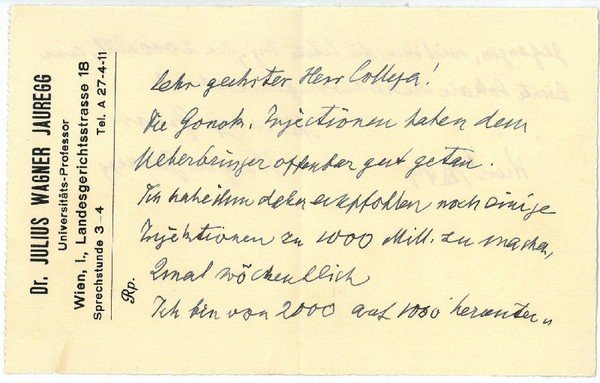 Dr. JULIUS WAGNER JAUREGG
Universitäts-Professor
Wien, I., Landesgerichtsstrasse 18
Sprechstunde 3–4 Tel. A 27-4-11
Rp.
Sehr geehrter Herr Collega!
Die Gonok. Injectionen haben dem
Ueberbringer offenbar gut getan.
Ich habe ihm daher empfohlen noch einige
Injektionen zu 1000 Mill. zu machen,
2mal wöchentlich
Ich bin von 2000 auf 1000 herunter„